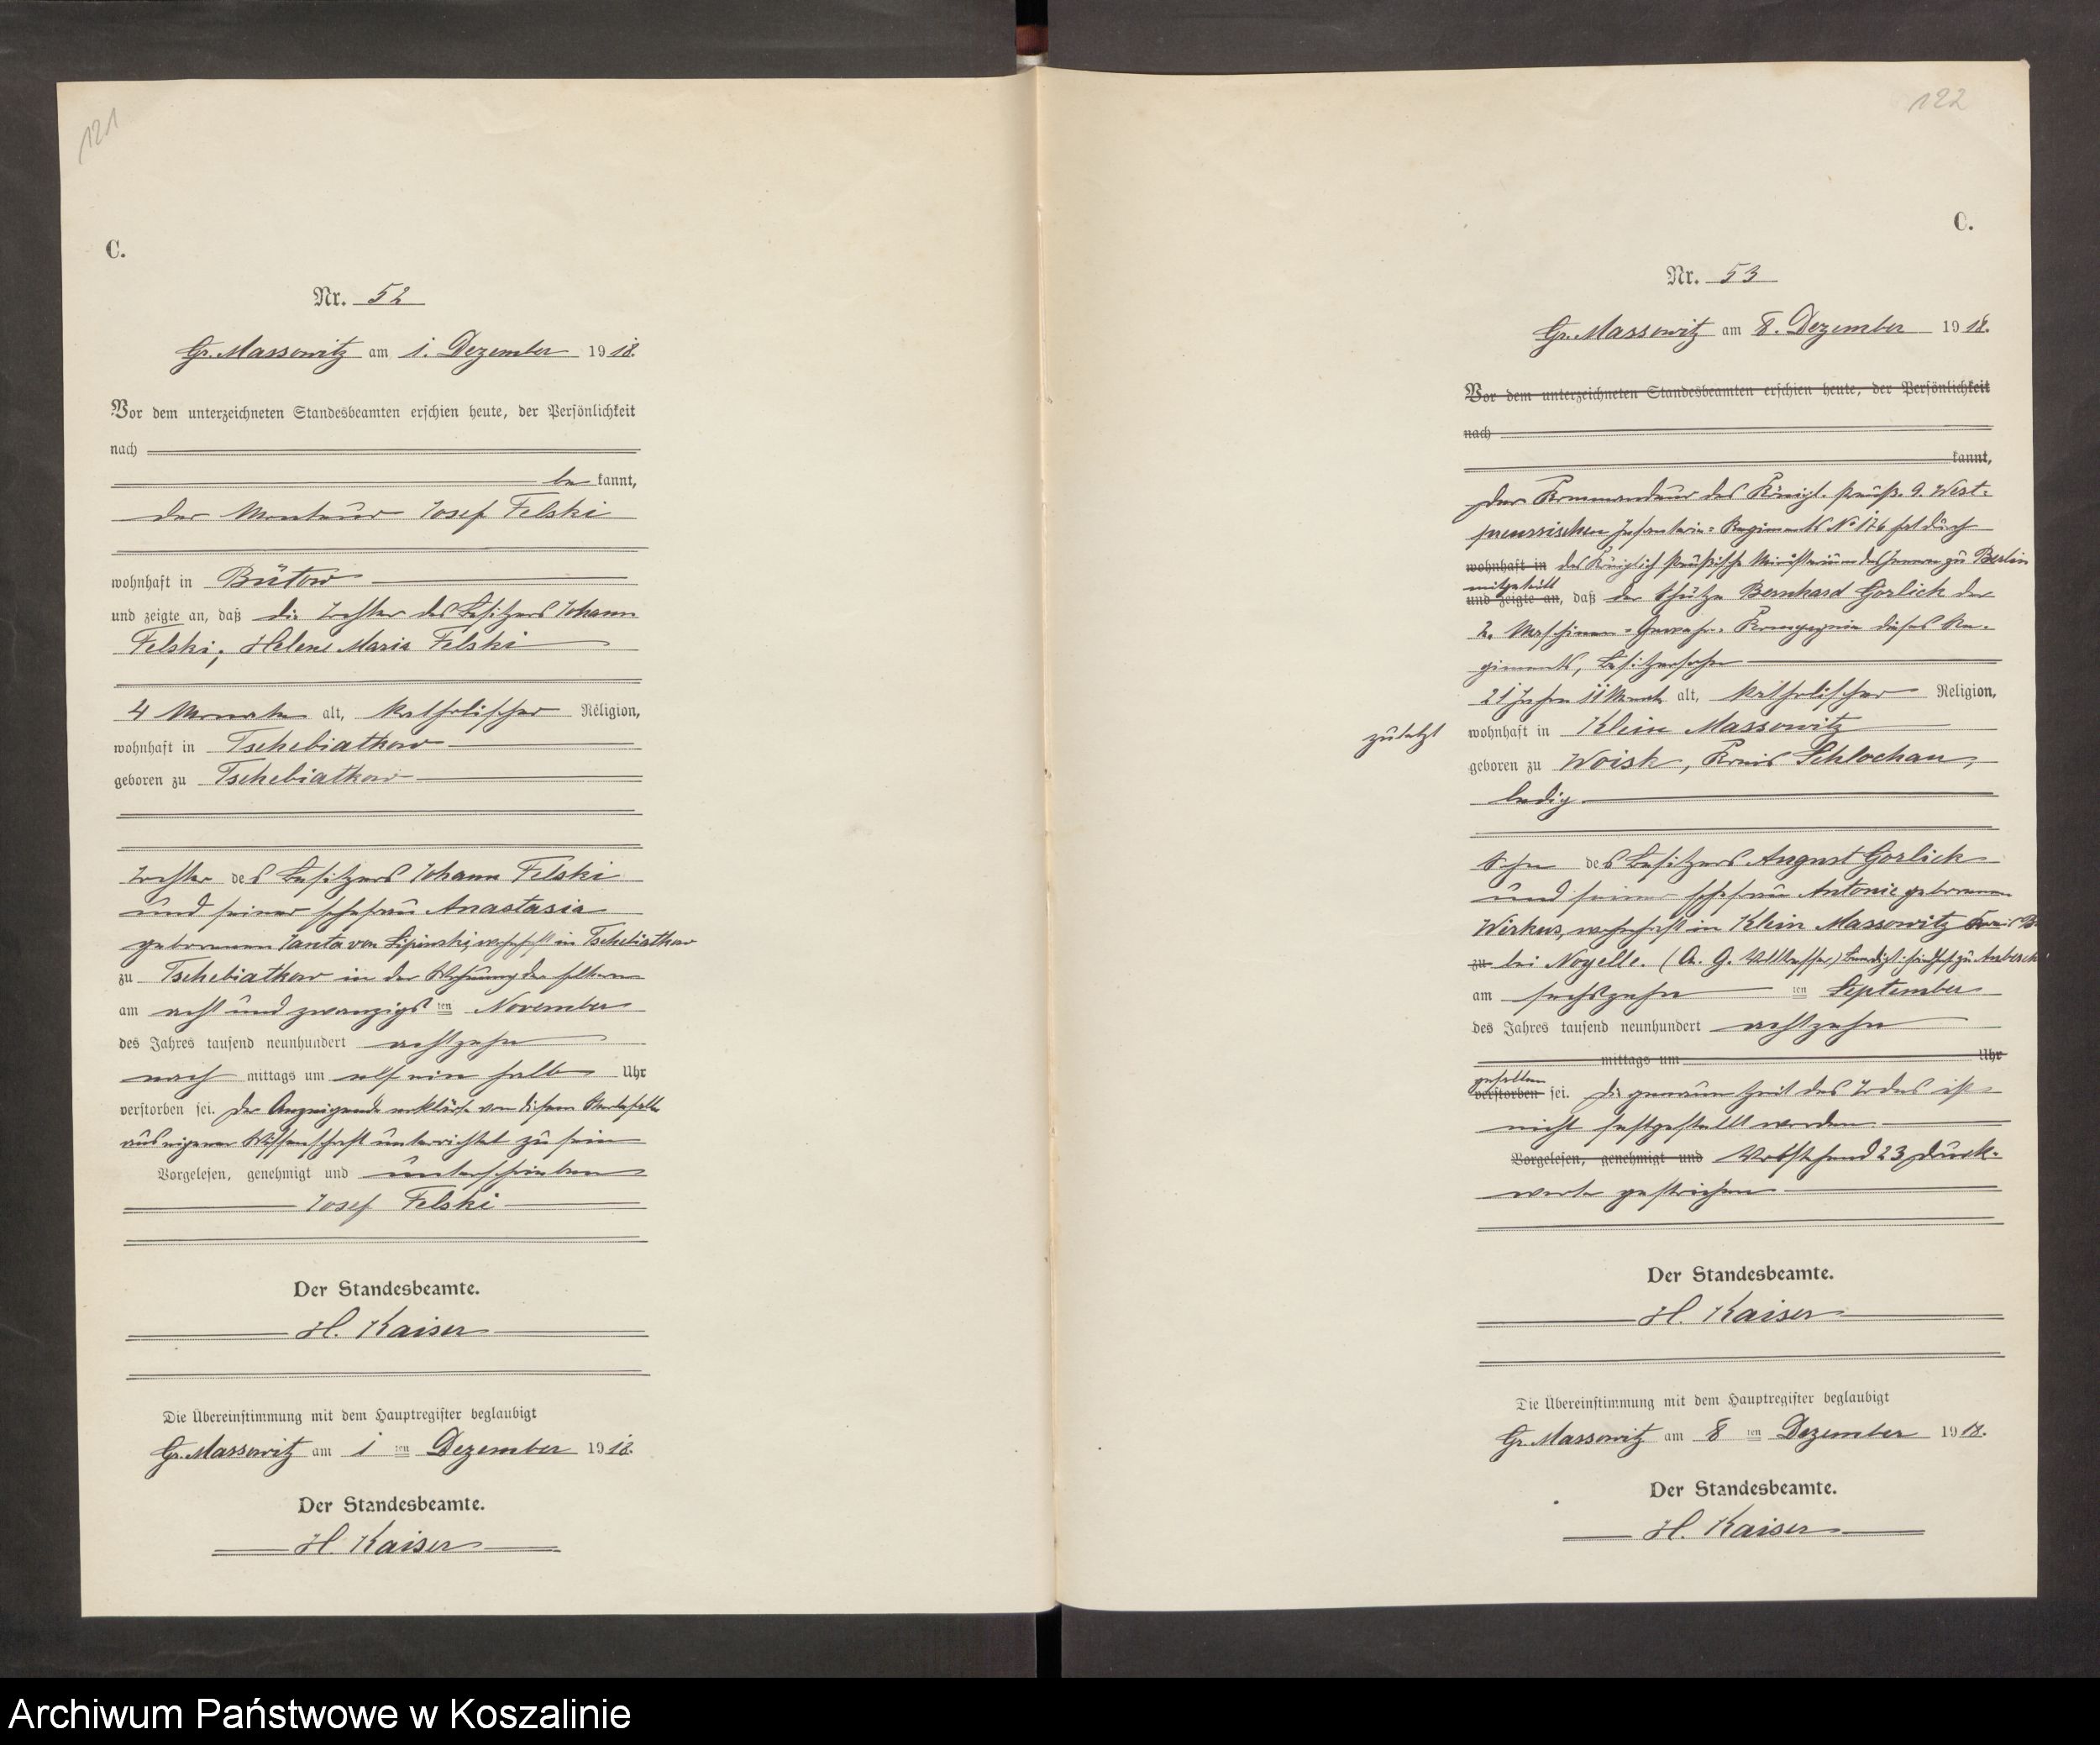 121
C.
Nr. 52
Gr. Massowitz am 1. Dezember 1918.
Vor dem unterzeichneten Standesbeamten erschien heute, der Persönlichkeit
nach
be kannt,
der Monteur Josef Felski
wohnhaft in Bütow
und zeigte an, daß die Tochter des Besitzers Johann
Felski, Helene Maria Felski
4 Monate alt, katholischer Religion,
wohnhaft in Tschebiatkow
geboren zu Tschebiatkow
Tochter des Besitzers Johann Felski
und seiner Ehefrau Anastasia
geborenen Janta von Lipinski, wohnhaft in Tschebiatkow
zu Tschebiatkow in der Wohnung der Eltern
am acht und zwanzigsten November
des Jahres tausend neunhundert achtzehn
nach mittags um elf ein halb Uhr
verstorben sei. Der Anzeigende erklärte von diesem Sterbefalle
aus eigener Wissenschaft unterrichtet zu sein
Vorgelesen, genehmigt und unterschrieben
Josef Felski
Der Standesbeamte.
H. Kaiser
Die Übereinstimmung mit dem Hauptregister beglaubigt
Gr. Massowitz am 1 ten Dezember 1918.
Der Standesbeamte.
H. Kaiser
122
C.
Nr. 53
Gr. Massowitz am 8. Dezember 1918.
Vor dem unterzeichneten Standesbeamten erschien heute, der Persönlichkeit
nach
kannt,
Der Kommandeur des Königl. Preuß. 9. West-
preussischen Infanterie-Regiments No 176 hat durch
wohnhaft in das Königlich Preußische Ministerium des Innern zu Berlin
mitgeteilt
und zeigte an, daß der Schütze Bernhard Gorlick der
2. Maschinen-Gewehr-Kompagnie dieses Re-
giments, Besitzersohn
21 Jahre 11 Monate alt, katholischer Religion,
zuletzt wohnhaft in Klein Massowitz
geboren zu Woisk, Kreis Schlochau,
ledig
Sohn des Besitzers August Gorlick
und seiner Ehefrau Antonie geborenen
Wirkus, wohnhaft in Klein Massowitz Kreis B.
zu bei Noyelle. (A. G. ) beerdigt: Friedhof zu
am sechszehn ten September
des Jahres tausend neunhundert achtzehn
mittags um Uhr
gefallen
verstorben sei. Die genaue Zeit des Todes ist
nicht festgestellt worden
Vorgelesen, genehmigt und Vorstehend 23 Druck-
worte gestrichen
Der Standesbeamte.
H. Kaiser
Die Übereinstimmung mit dem Hauptregister beglaubigt
Gr. Massowitz am 8 ten Dezember 1918.
Der Standesbeamte.
H. Kaiser
Archiwum Państwowe w Koszalinie